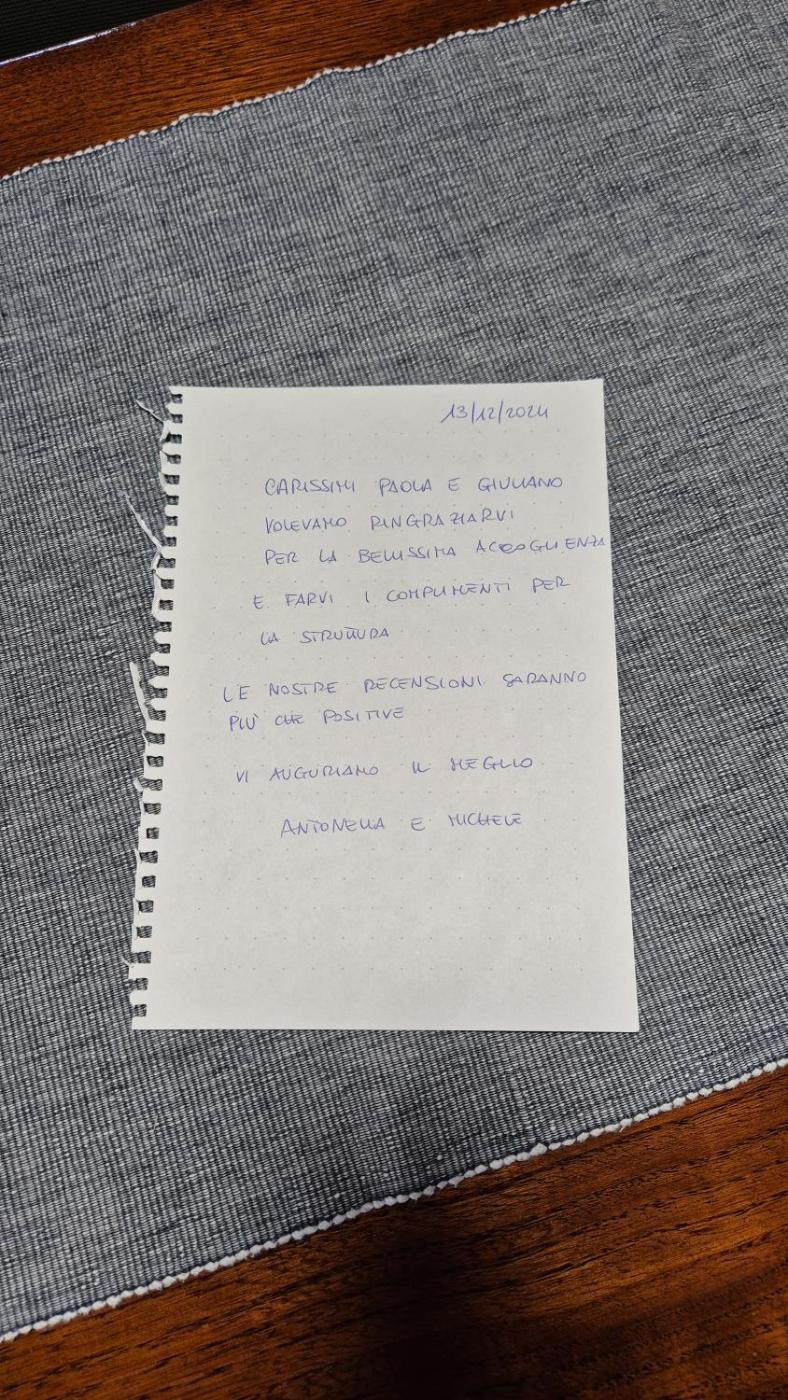 13/12/2024
CARISSIMI PAOLA E GIULIANO
VOLEVAMO RINGRAZIARVI
PER LA BELLISSIMA ACCOGLIENZA
E FARVI I COMPLIMENTI PER
LA STRUTTURA
LE NOSTRE RECENSIONI SARANNO
PIU' CHE POSITIVE
VI AUGURIAMO IL MEGLIO
ANTONELLA E MICHELE